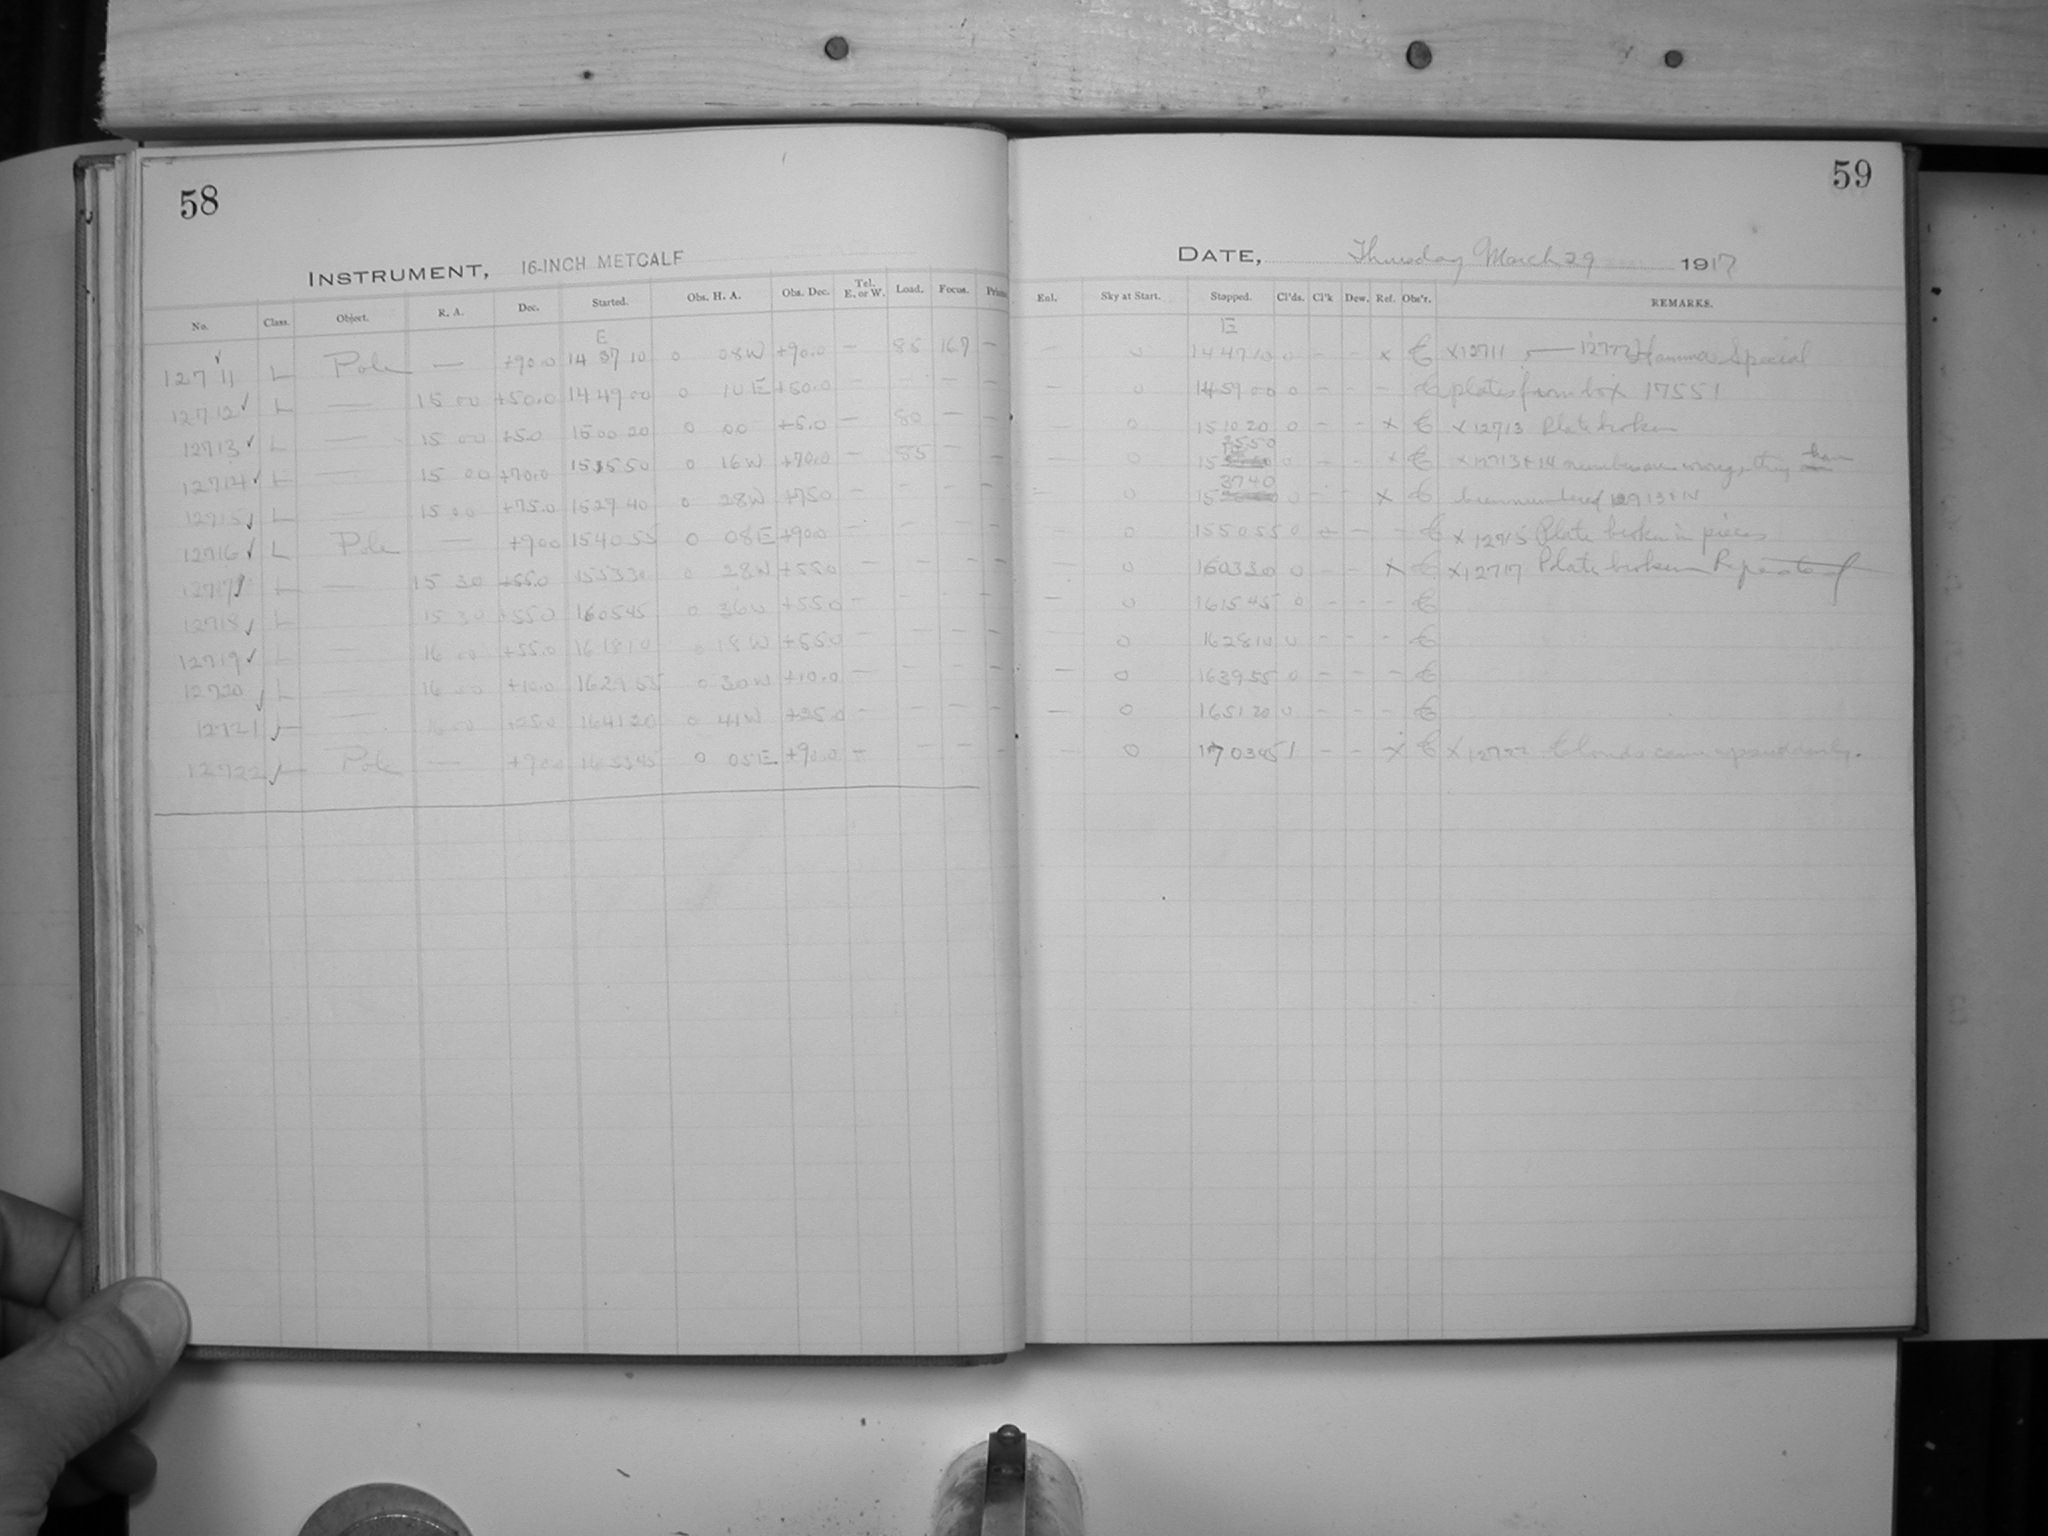 58
INSTRUMENT, 16-INCH METCALF
No. Class. Object. R. A. Dec. Started. Obs. H. A. Obs. Dec. Tel. E. or W. Load. Focus. Prism
E
12711 L Pole — +90.0 14 37 10 0 08W +90.0 — 85 16.9 —
12712 L — 15 00 +50.0 14 49 00 0 10E +50.0 — - - —
12713 L — 15 00 +5.0 15 00 20 0 00 +5.0 — 80 — —
12714 L — 15 00 +70.0 15 15 50 0 16W +70.0 — 85 — —
12715 L — 15 00 +75.0 15 27 40 0 28W +75.0 - - - -
12716 L Pole — +90.0 15 40 55 0 08E +90.0 — - - -
12717 L — 15 30 +55.0 15 53 30 0 28W +55.0 — — - -
12718 L — 15 30 +55.0 16 05 45 0 36W +55.0 — - - —
12719 L — 16 00 +55.0 16 18 10 0 18W +55.0 — - - —
12720 L — 16 00 +10.0 16 29 55 0 30W +10.0 — - - -
12721 — 16 00 +25.0 16 41 20 0 41W +25.0 — - — -
12722 Pole — +90.0 16 53 45 0 05E +90.0 — — — -
59
DATE, Thursday March 29 1917
Enl. Sky at Start. Stopped. Cl'ds. Cl'k Dew. Ref. Obs'r. REMARKS.
E
— 0 14 47 10 0 - - x C x12711 — 12722 Hammer Special
— 0 14 59 00 0 - - - C plates from box 17551
— 0 15 10 20 0 - - x C x 12713 Plate broken
— 0 15 25 50 0 - - x C x12713+14 numbers are wrong, they have
— 0 15 37 40 0 - - x C been numbered 12913+14
— 0 15 50 55 0 - — - C x 12715 Plate broken in pieces
— 0 16 03 30 0 - - x C x12717 Plate broken Repeated
— 0 16 15 45 0 - - - C
— 0 16 28 10 0 - - - C
— 0 16 39 55 0 - - - C
— 0 16 51 20 0 - - - C
— 0 17 03 45 1 - - x C x12722 Clouds came up suddenly.